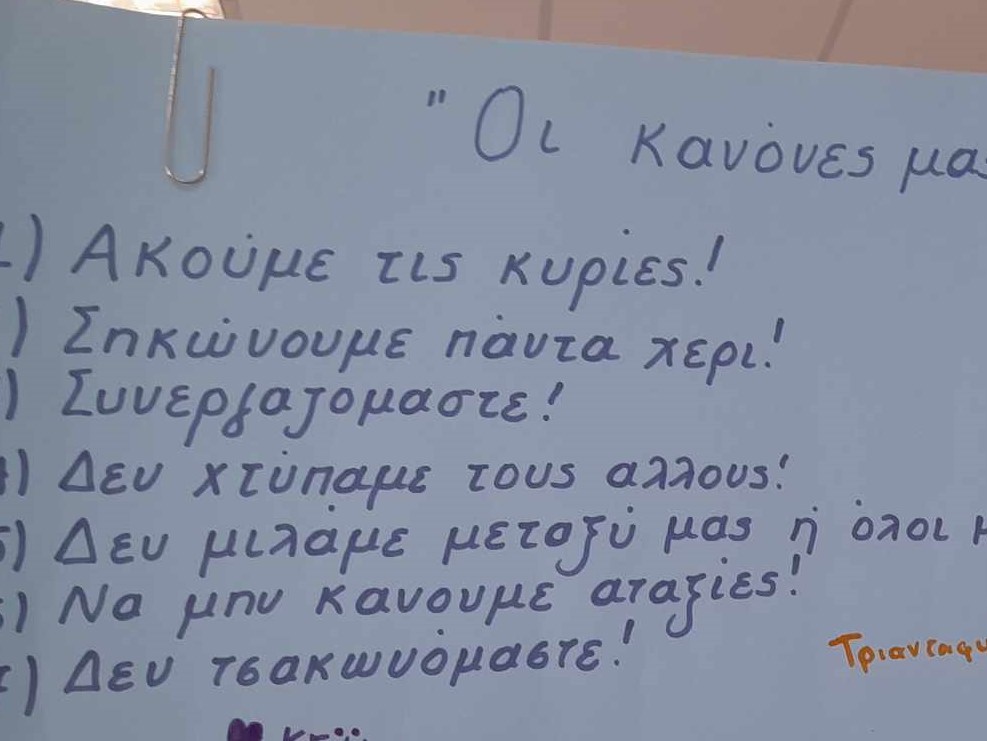 "Οι κανόνες μας
1) Ακούμε τις κυρίες!
) Σηκώνουμε πάντα χερι!
) Συνεργαζομαστε!
4) Δεν χτύπαμε τους αλλους!
5) Δεν μιλάμε μεταξύ μας ή όλοι μ
6) Να μην κανουμε αταξίες!
7) Δεν τσακωνόμαστε!
Τριανταφυ